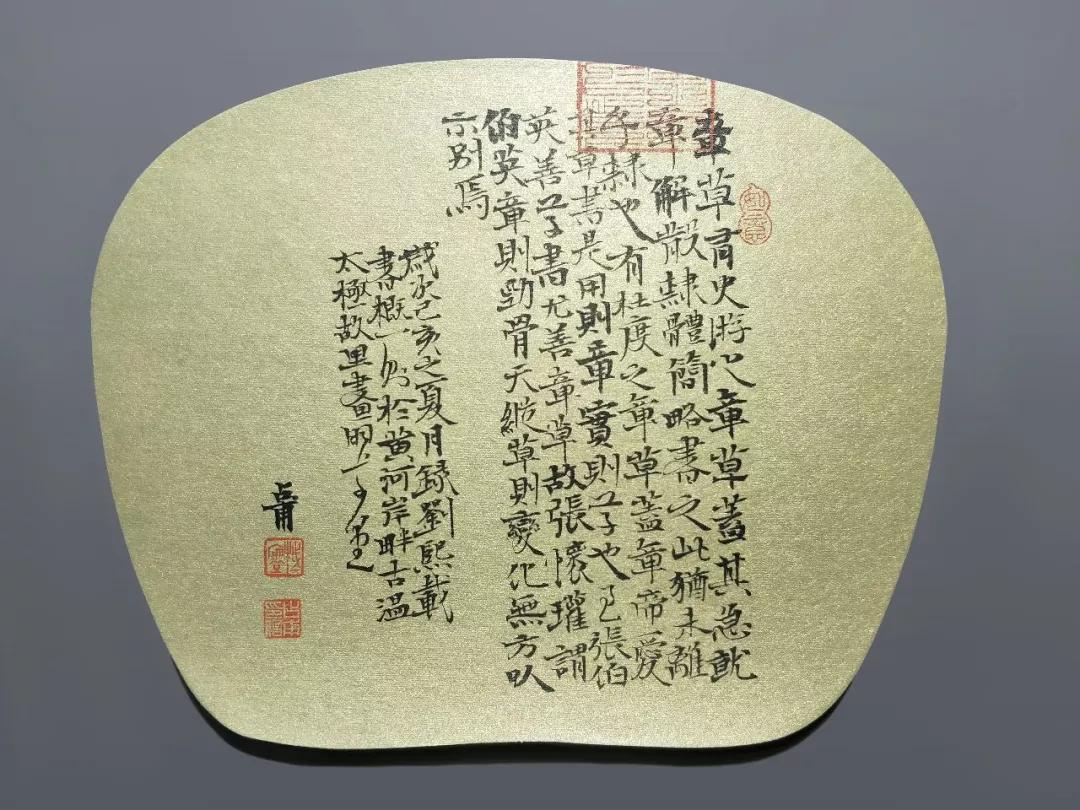 章草有史游之章草蓋其急就
章解散隸體簡略書之此猶未離
乎隸也有杜度之章草蓋章帝愛
其章書是用則章實則草也至張伯
英善草書尤善章草故張懷瓘謂
伯英章則勁骨天縱草則變化無方以
示別焉
歲次己亥之夏月錄劉熙載
書概一則於黃河岸畔古溫
太極故里